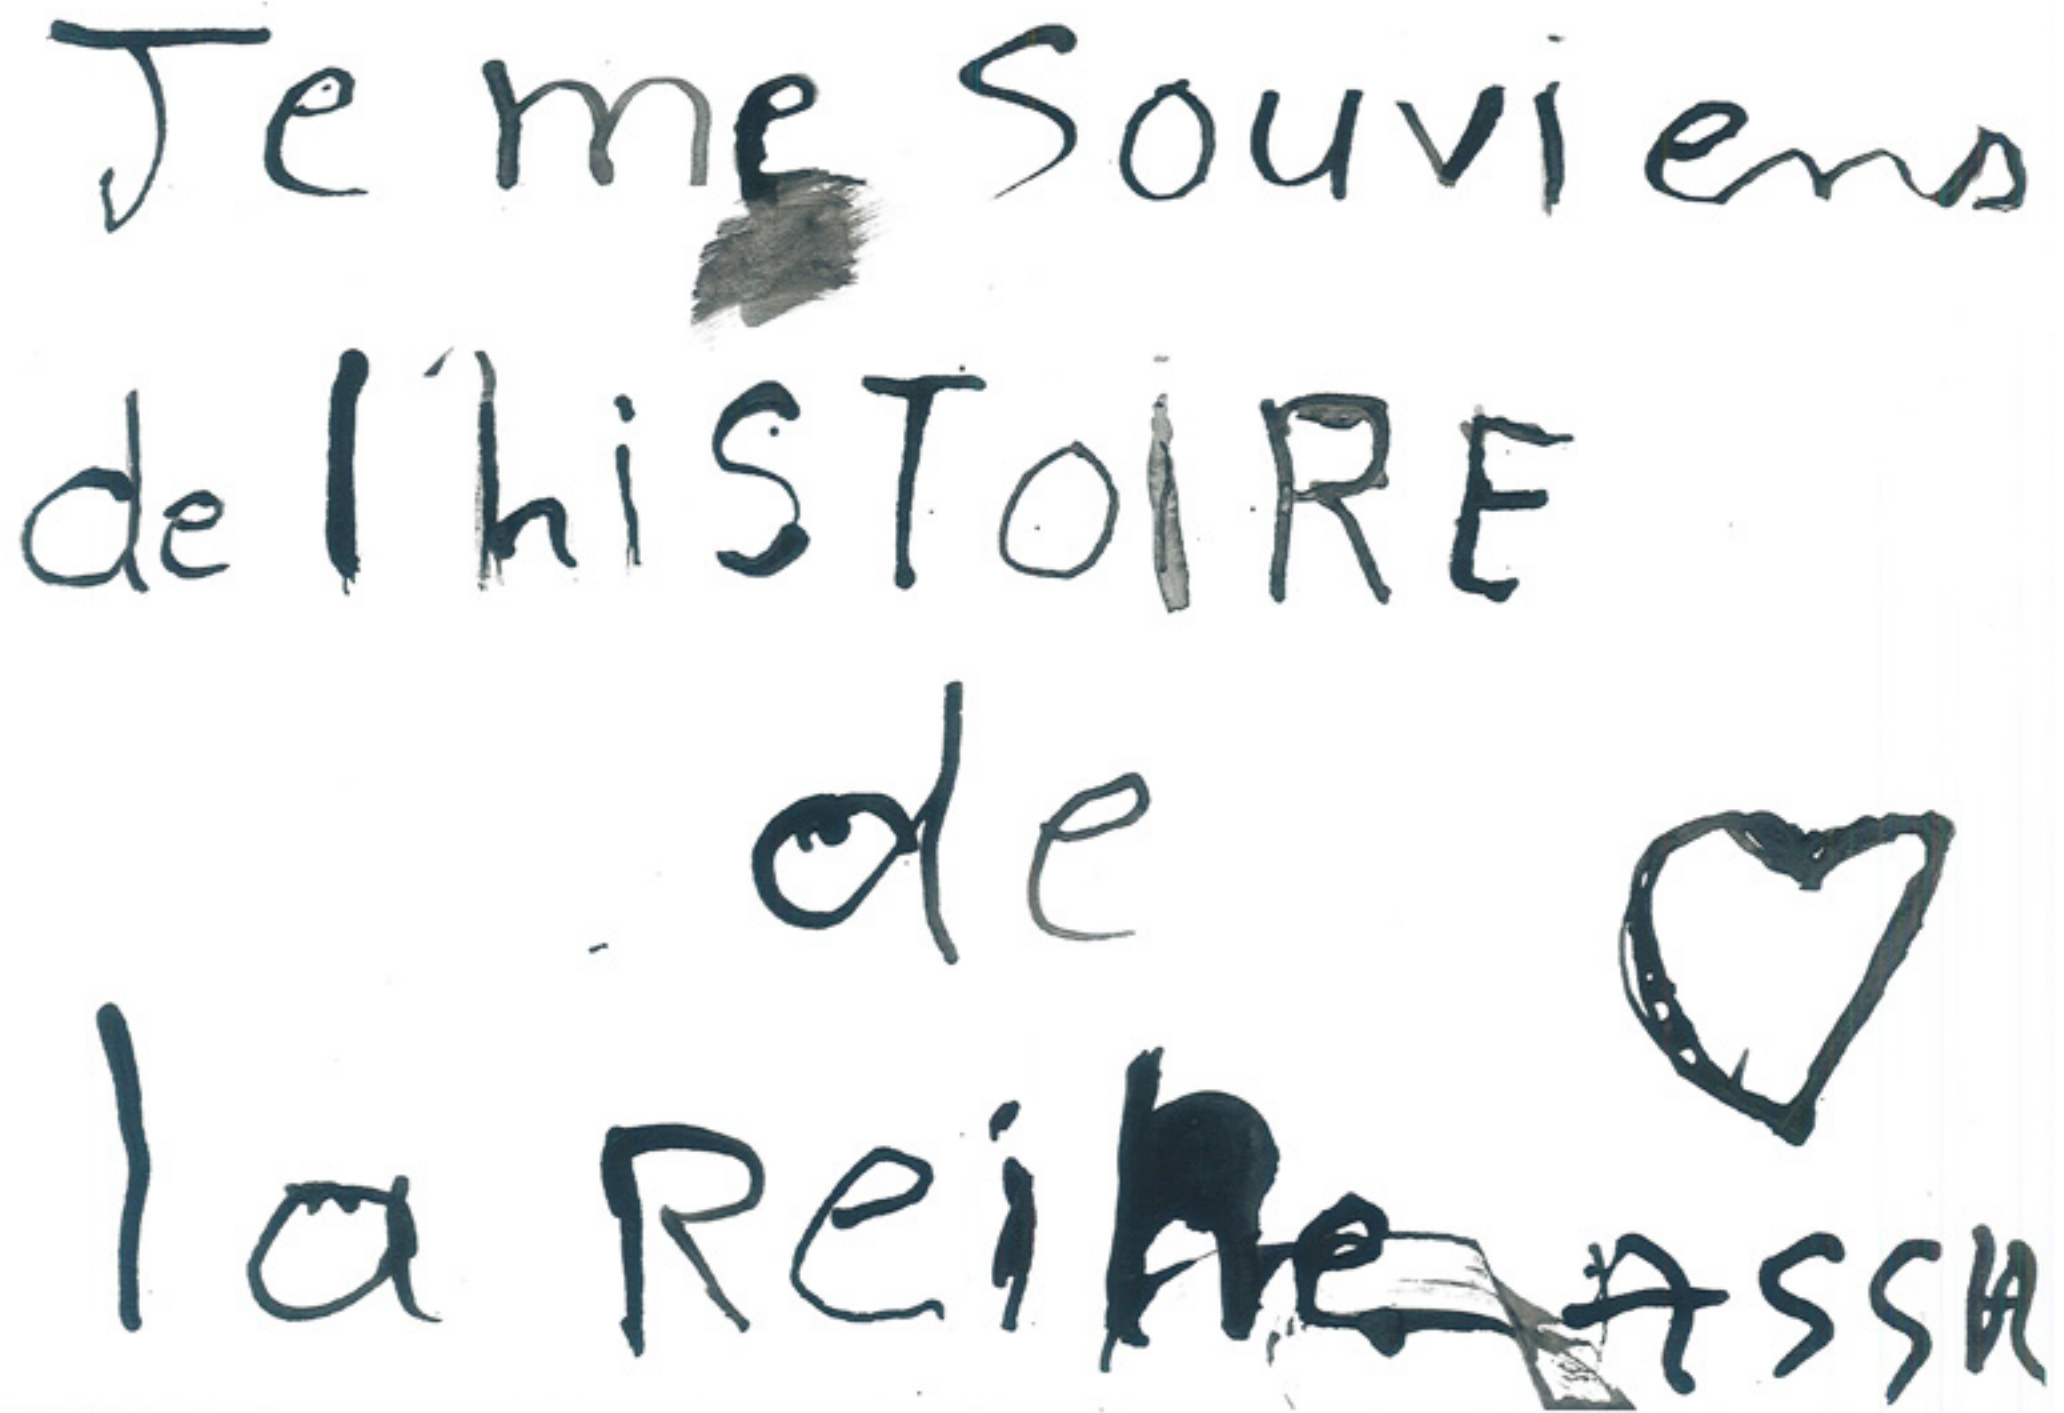 Je me Souviens
de l'hiSToIRE
de
la Reine ASSA